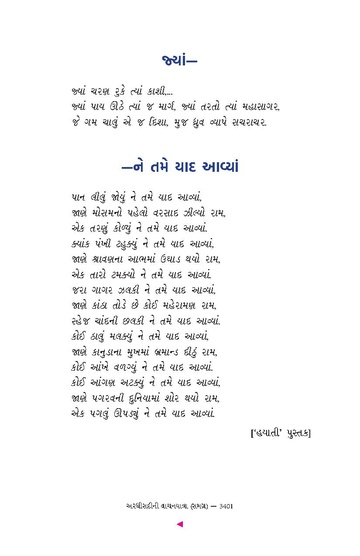 જ્યાં—
જ્યાં ચરણ રુકે ત્યાં કાશી,...
જ્યાં પાય ઊઠે ત્યાં જ માર્ગ, જ્યાં તરતો ત્યાં મહાસાગર.
જે ગમ ચાલું એ જ દિશા, મુજ ધ્રુવ વ્યાપે સચરાચર.
—ને તમે યાદ આવ્યાં
પાન લીલું જોયું ને તમે યાદ આવ્યાં,
જાણે મોસમનો પહેલો વરસાદ ઝીલ્યો રામ,
એક તરણું કોળ્યું ને તમે યાદ આવ્યાં.
ક્યાંક પંખી ટહુક્યું ને તમે યાદ આવ્યાં,
જાણે શ્રાવણના આભમાં ઉઘાડ થયો રામ,
એક તારો ટમક્યો ને તમે યાદ આવ્યાં.
જરા ગાગર ઝલકી ને તમે યાદ આવ્યાં,
જાણે કાંઠા તોડે છે કોઈ મહેરામણ રામ,
સ્હેજ ચાંદની છલકી ને તમે યાદ આવ્યાં.
કોઈ ઠાલું મલક્યું ને તમે યાદ આવ્યાં,
જાણે કાનુડાના મુખમાં બ્રમાન્ડ દીઠું રામ,
કોઈ આંખે વળગ્યું ને તમે યાદ આવ્યાં.
કોઈ આંગણ અટક્યું ને તમે યાદ આવ્યાં,
જાણે પગરવની દુનિયામાં શોર થયો રામ,
એક પગલું ઊપડ્યું ને તમે યાદ આવ્યાં.
['હયાતી' પુસ્તક]
અરધીસદીની વાચનયાત્રા (સમગ્ર) — 3401
◄